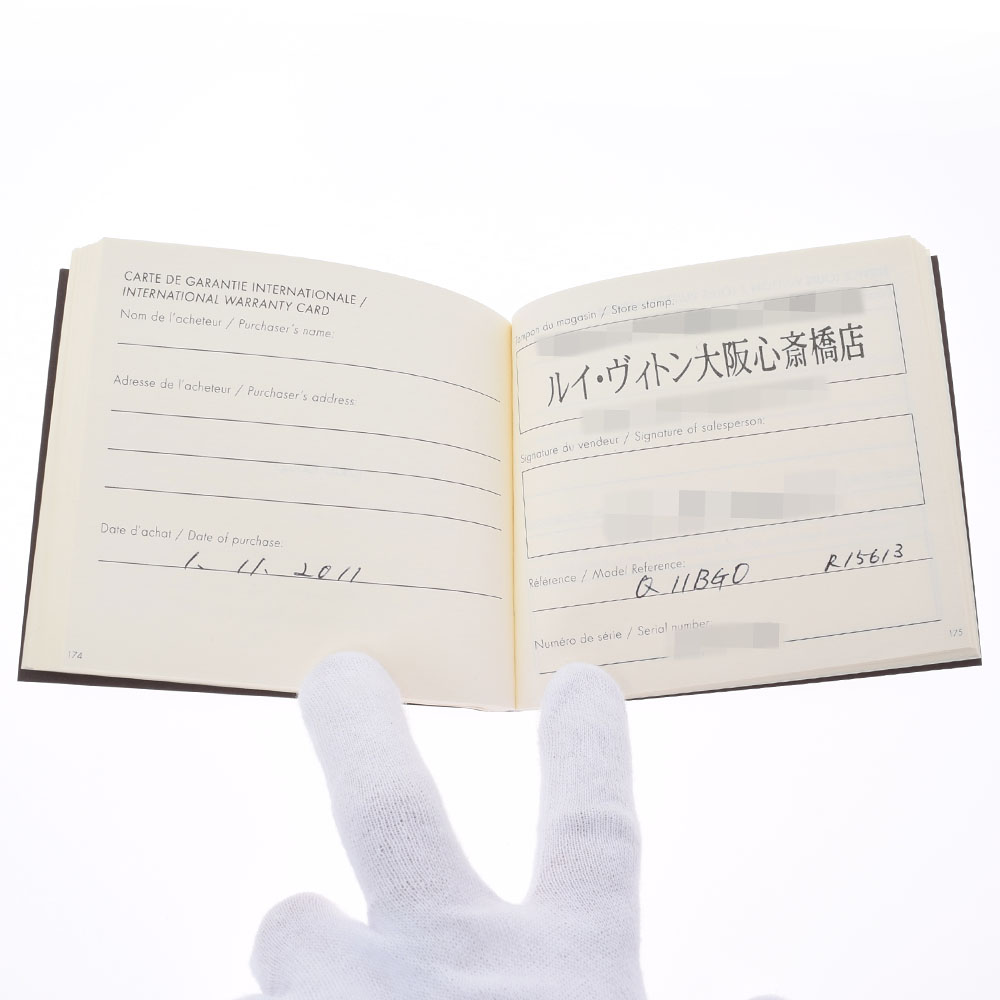 CARTE DE GARANTIE INTERNATIONALE /
INTERNATIONAL WARRANTY CARD
Nom de l'acheteur / Purchaser's name:
Adresse de l'acheteur / Purchaser's address:
Date d'achat / Date of purchase:
1. 11. 2011
174
Tampon du magasin / Store stamp:
ルイ・ヴィトン大阪心斎橋店
Signature du vendeur / Signature of salesperson:
Référence / Model Reference:
Q 11BG0 R15613
Numéro de série / Serial number
175